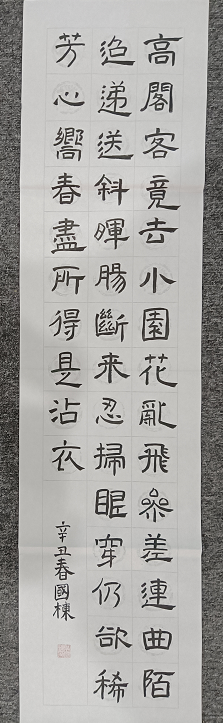 高閣客竟去小園花亂飛參差連曲陌
迢递送斜暉腸斷来忍掃眼穿仍欲稀
芳心嚮春盡所得是沾衣
辛丑春國棟